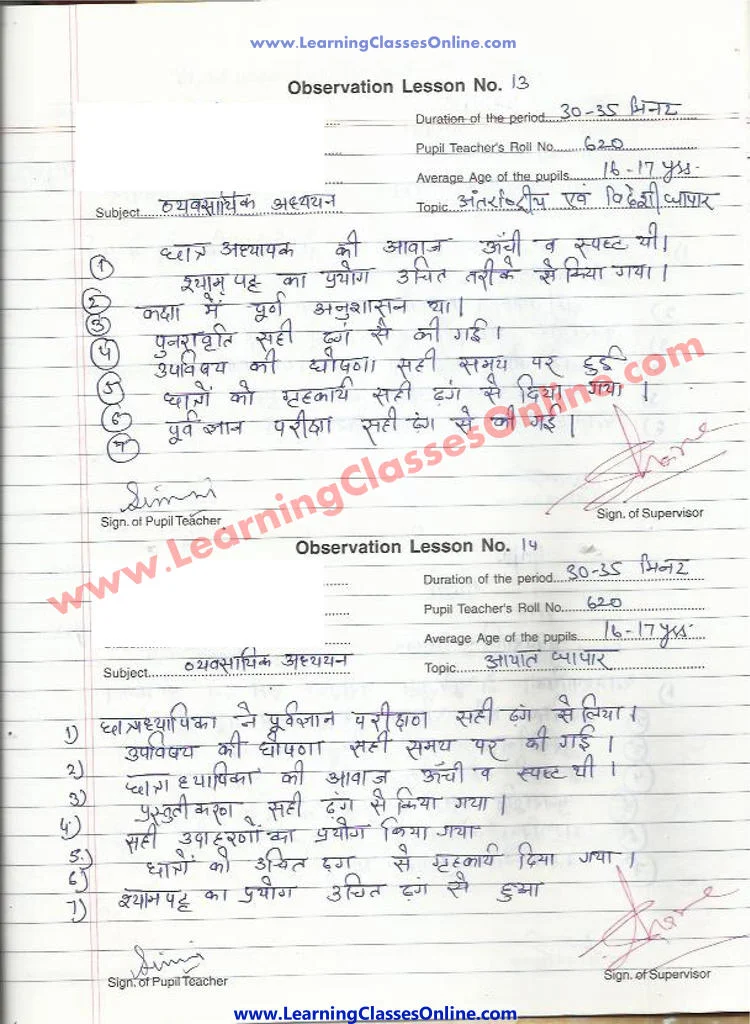 www.LearningClassesOnline.com
Observation Lesson No. 13
Duration of the period 30-35 मिनट
Pupil Teacher's Roll No. 620
Average Age of the pupils 16-17 yrs.
Subject व्यवसायिक अध्ययन Topic अंतर्राष्ट्रीय एवं विदेशी व्यापार
1 छात्र अध्यापक की आवाज ऊँची व स्पष्ट थी।
2 श्यामपट्ट का प्रयोग उचित तरीके से किया गया।
3 कक्षा में पूर्ण अनुशासन था।
4 पुनरावृति सही ढंग से की गई।
5 उपविषय की घोषणा सही समय पर हुई
6 छात्रों को गृहकार्य सही ढ़ंग से दिया गया।
7 पूर्व ज्ञान परीक्षा सही ढ़ंग से की गई।
www.LearningClassesOnline.com
Simmi
Sign. of Pupil Teacher Sign. of Supervisor
Observation Lesson No. 14
Duration of the period 30-35 मिनट
Pupil Teacher's Roll No. 620
Average Age of the pupils 16-17 yrs.
Subject व्यवसायिक अध्ययन Topic आयात व्यापार
1) छात्राध्यापिका ने पूर्वज्ञान परीक्षण सही ढ़ंग से लिया।
2) उपविषय की घोषणा सही समय पर की गई।
3) छात्राध्यापिका की आवाज ऊँची व स्पष्ट थी।
4) प्रस्तुतीकरण सही ढ़ंग से किया गया।
5.) सही उदाहरणों का प्रयोग किया गया
6) छात्रों को उचित ढ़ंग से गृहकार्य दिया गया।
7) श्यामपट्ट का प्रयोग उचित ढ़ंग से हुआ
Simmi
Sign. of Pupil Teacher Sign. of Supervisor
www.LearningClassesOnline.com